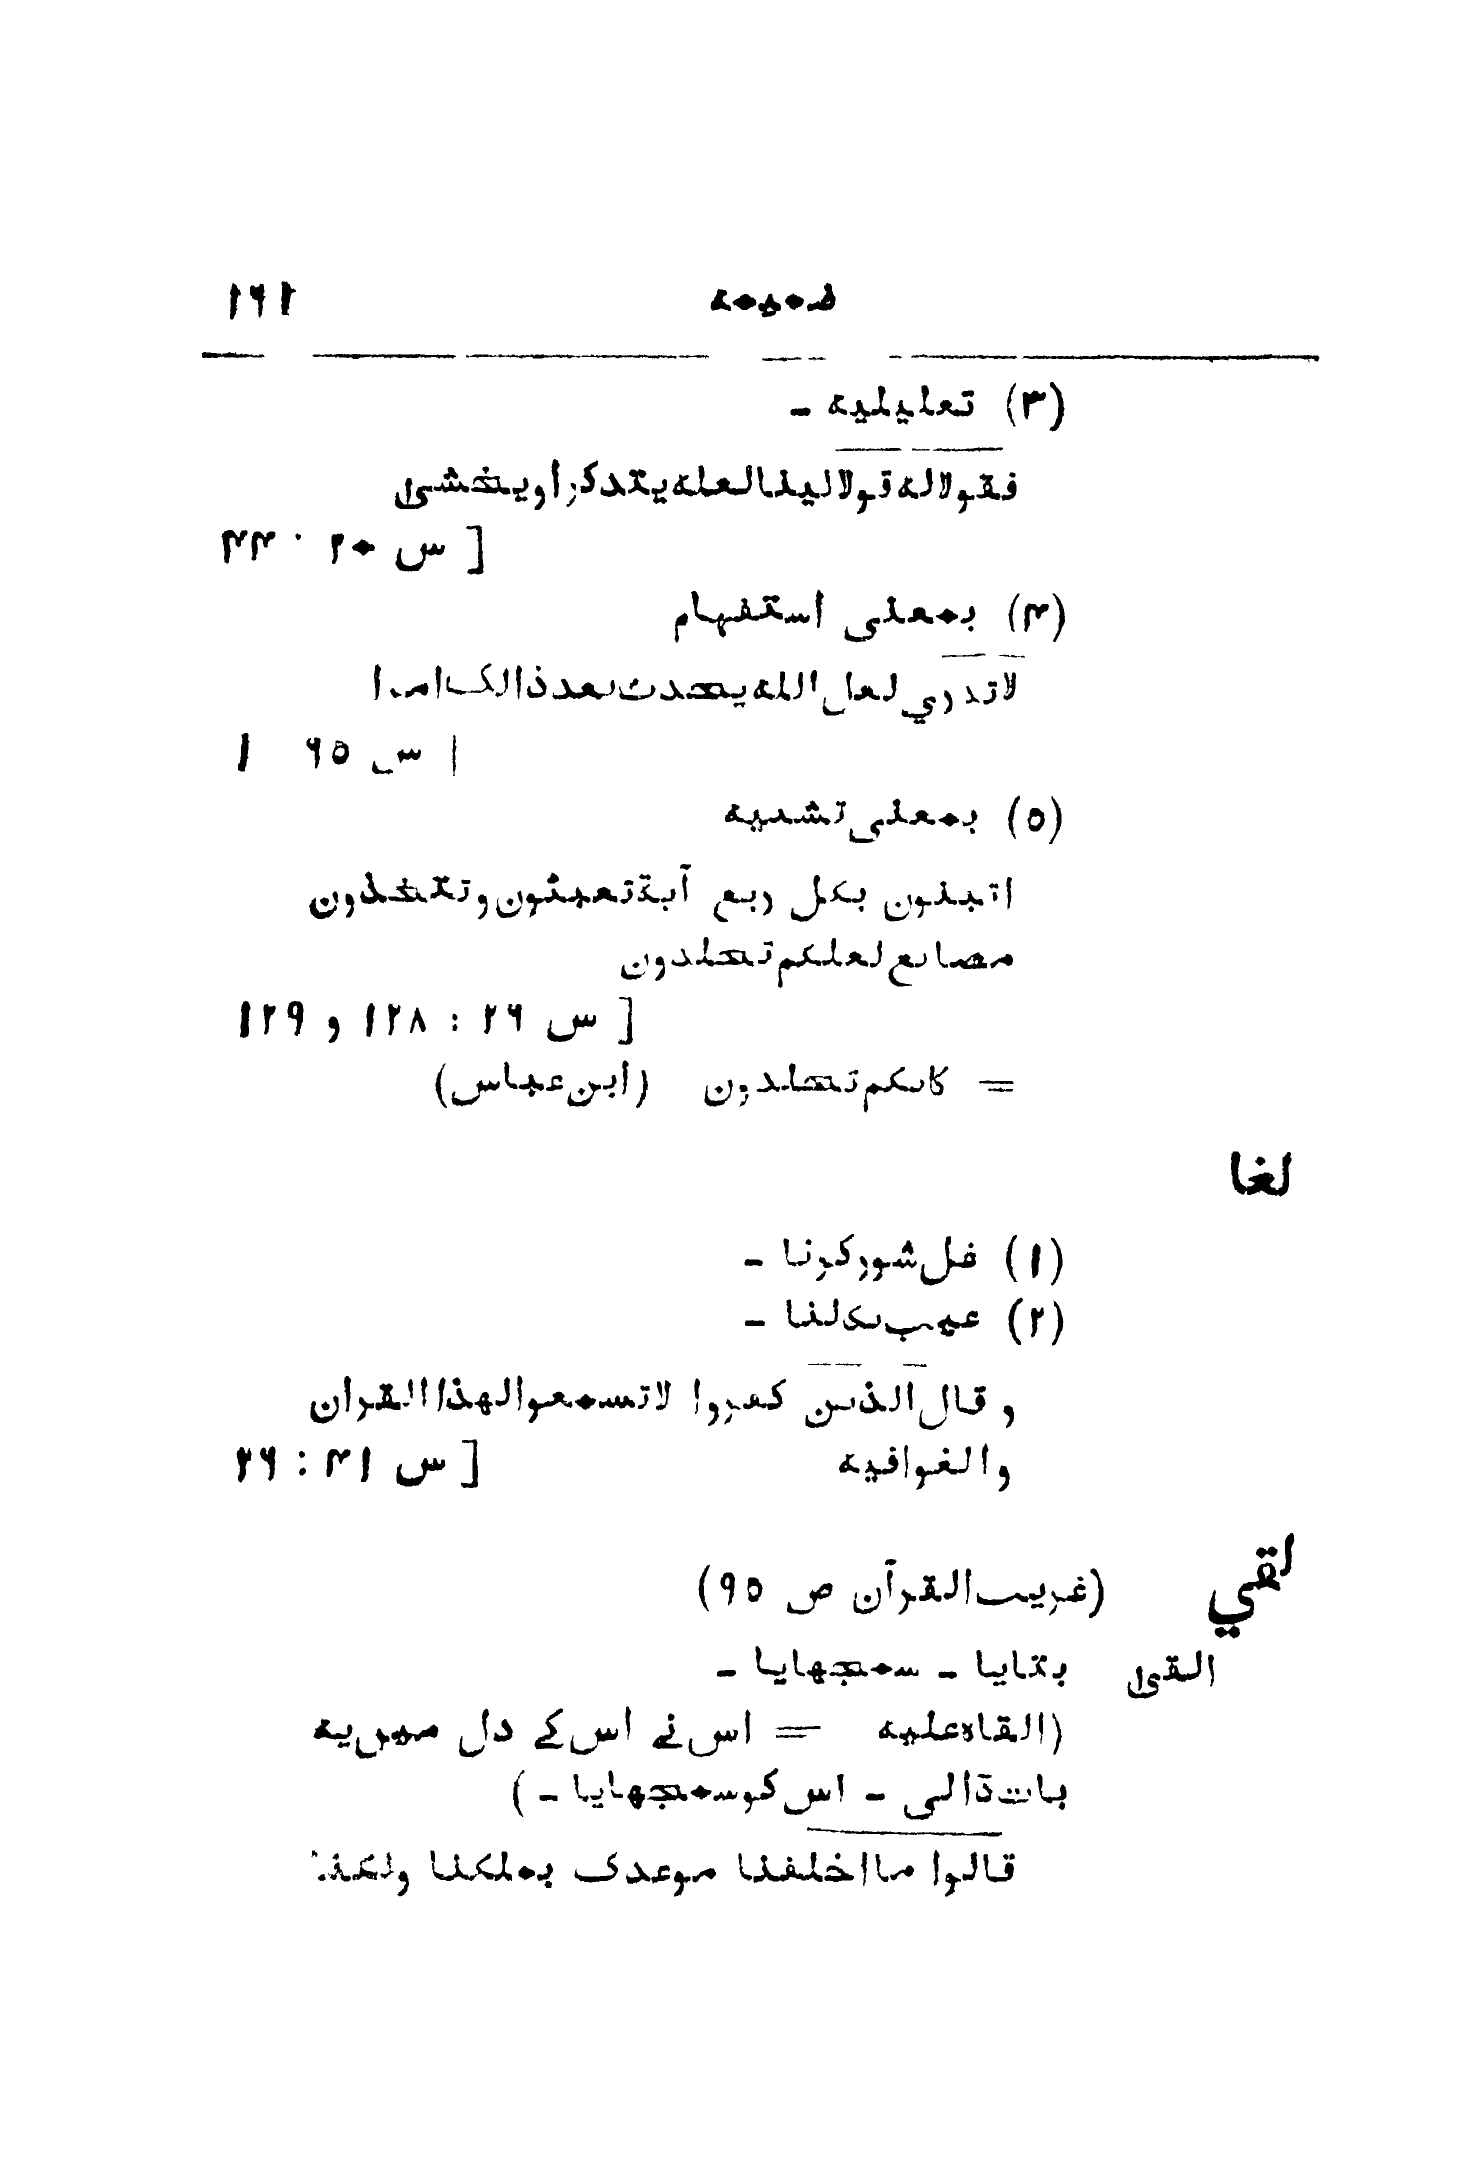 ضمیمه ۱۶۱
(۳) تعلیلیه -
فقولا له قولا لینا لعله یتذکر او یخشیٰ
[ س ۲۰ : ۴۴
(۴) بمعنی استفهام
لا تدري لعل الله یحدث بعد ذالک امرا
[ س ۶۵ : ۱
(۵) بمعنی تشبیه
اتبنون بکل ریع آیة تعبثون و تتخذون
مصانع لعلکم تخلدون
[ س ۲۶ : ۱۲۸ و ۱۲۹
= کانکم تخلدون (ابن عباس)
لغا
(۱) غل شور کرنا -
(۲) عیب نکالنا -
و قال الذین کفروا لا تسمعوا لهذا القران
والغوا فیه [ س ۴۱ : ۲۶
لقي (غریب القرآن ص ۹۵)
القیٰ بتایا - سمجهایا -
(القاه علیه = اس نے اس کے دل میں یه
بات ڈالی - اس کو سمجهایا - )
قالوا ما اخلفنا موعدک بملکنا ولکنا